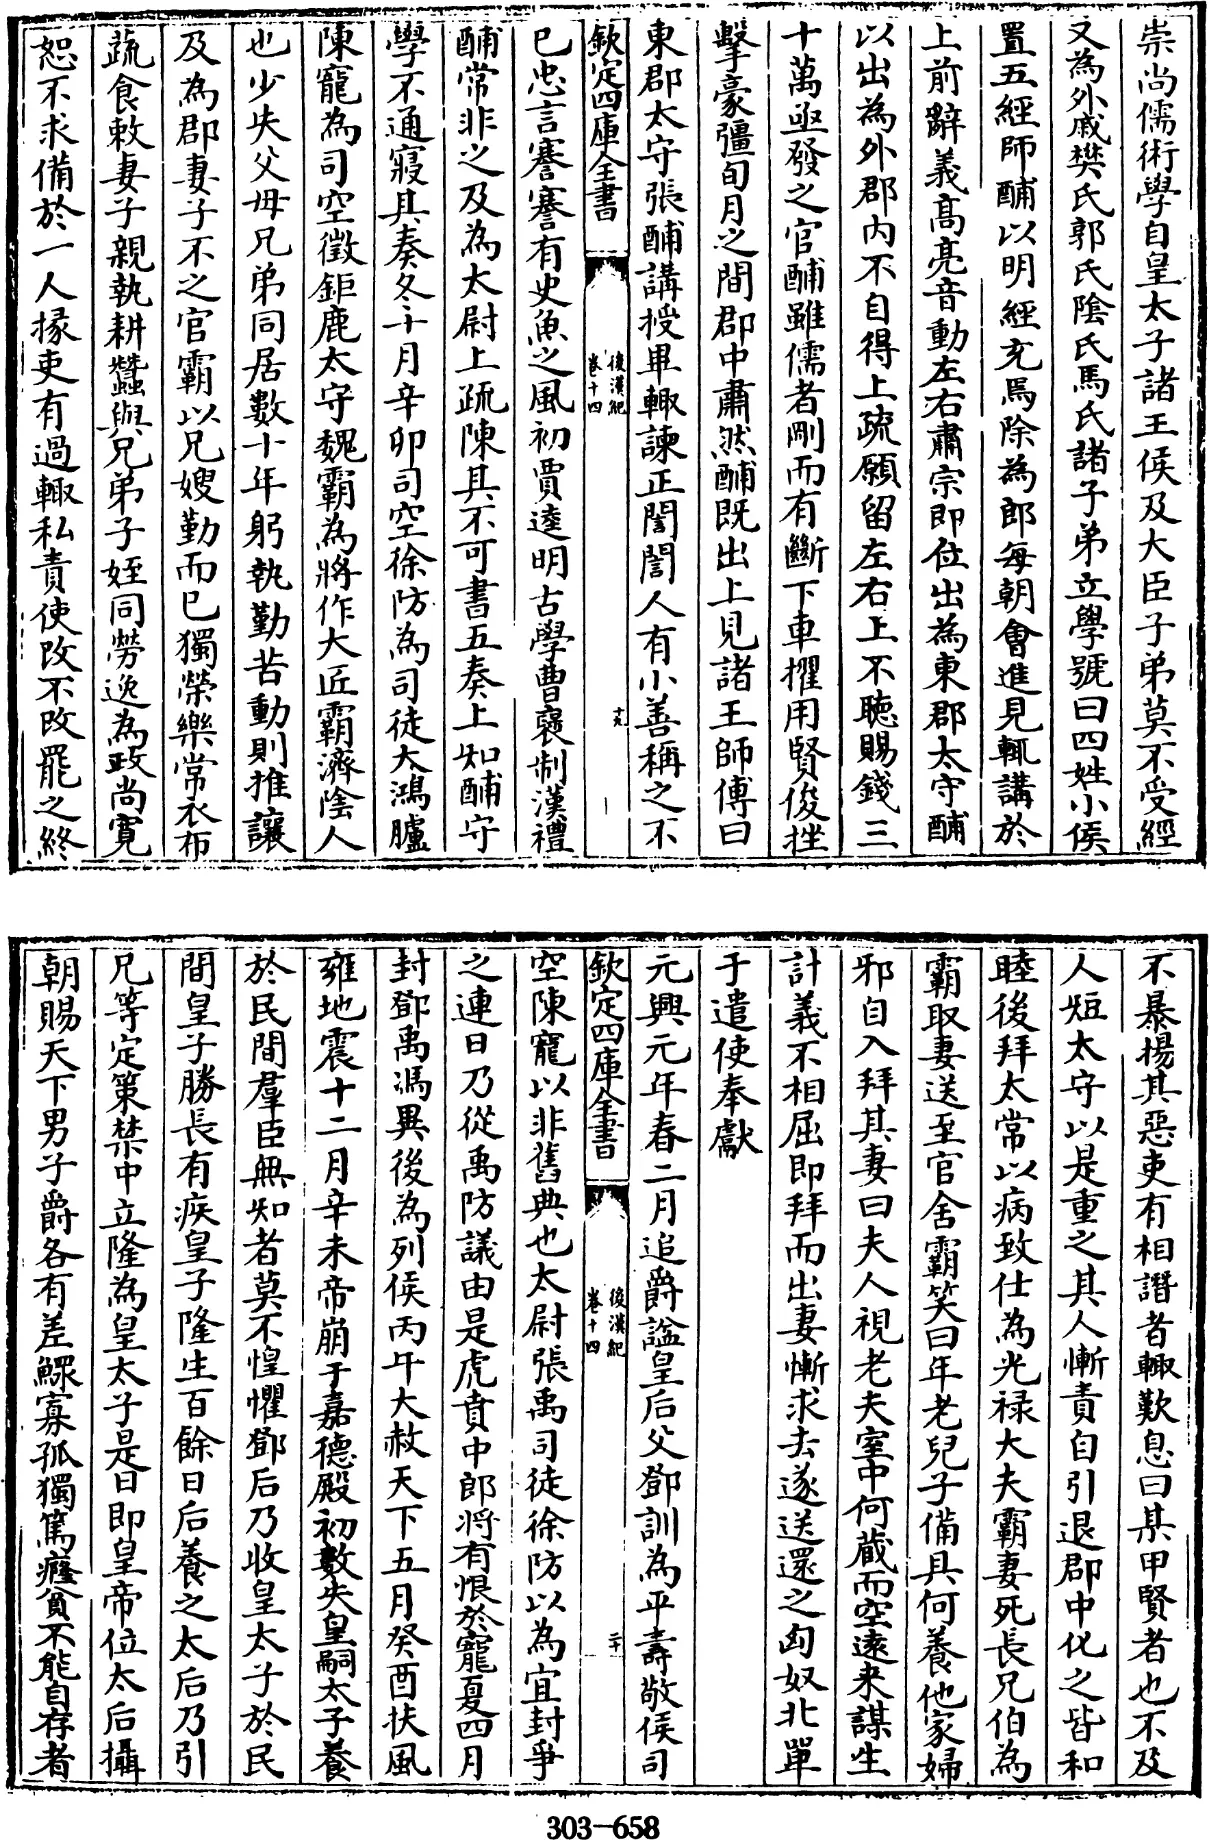 崇尚儒術學自皇太子諸王侯及大臣子弟莫不受經
又為外戚樊氏郭氏陰氏馬氏諸子弟立學號曰四姓小侯
置五經師酺以明經充焉除為郎每朝會進見輒講於
上前辭義高亮音動左右肅宗即位出為東郡太守酺
以出為外郡内不自得上疏願留左右上不聴賜錢三
十萬亟發之官酺雖儒者剛而有斷下車擢用賢俊挫
擊豪彊旬月之間郡中肅然酺既出上見諸王師傅曰
東郡太守張酺講授畢輙諫正誾誾人有小善稱之不
欽定四庫全書
後漢紀
卷十四
十九
已忠言謇謇有史魚之風初賈逵明古學曹襃制漢禮
酺常非之及為太尉上疏陳其不可書五奏上知酺守
學不通寢其奏冬十月辛卯司空徐防為司徒大鴻臚
陳寵為司空徵鉅鹿太守魏霸為將作大匠霸濟陰人
也少失父母兄弟同居數十年躬執勤苦動則推讓
及為郡妻子不之官霸以兄嫂勤而已獨榮樂常衣布
蔬食敕妻子親執耕蠶與兄弟子姪同勞逸為政尚寛
恕不求備於一人掾吏有過輙私責使改不改罷之終
不暴揚其惡吏有相譖者輙歎息曰某甲賢者也不及
人短太守以是重之其人慚責自引退郡中化之皆和
睦後拜太常以病致仕為光禄大夫霸妻死長兄伯為
霸取妻送至官舍霸笑曰年老兒子備具何養他家婦
邪自入拜其妻曰夫人視老夫室中何蔵而空遠来謀生
計義不相屈即拜而出妻慚求去遂送還之匈奴北單
于遣使奉獻
元興元年春二月追爵謚皇后父鄧訓為平壽敬侯司
欽定四庫全書
後漢紀
卷十四
二十
空陳寵以非舊典也太尉張禹司徒徐防以為宜封爭
之連日乃從禹防議由是虎賁中郎將有恨於寵夏四月
封鄧禹馮異後為列侯丙午大赦天下五月癸酉扶風
雍地震十二月辛未帝崩于嘉德殿初數失皇嗣太子養
於民間羣臣無知者莫不惶懼鄧后乃收皇太子於民
間皇子勝長有疾皇子隆生百餘日后養之太后乃引
兄等定策禁中立隆為皇太子是日即皇帝位太后攝
朝賜天下男子爵各有差鰥寡孤獨篤癃貧不能自存者
303-658